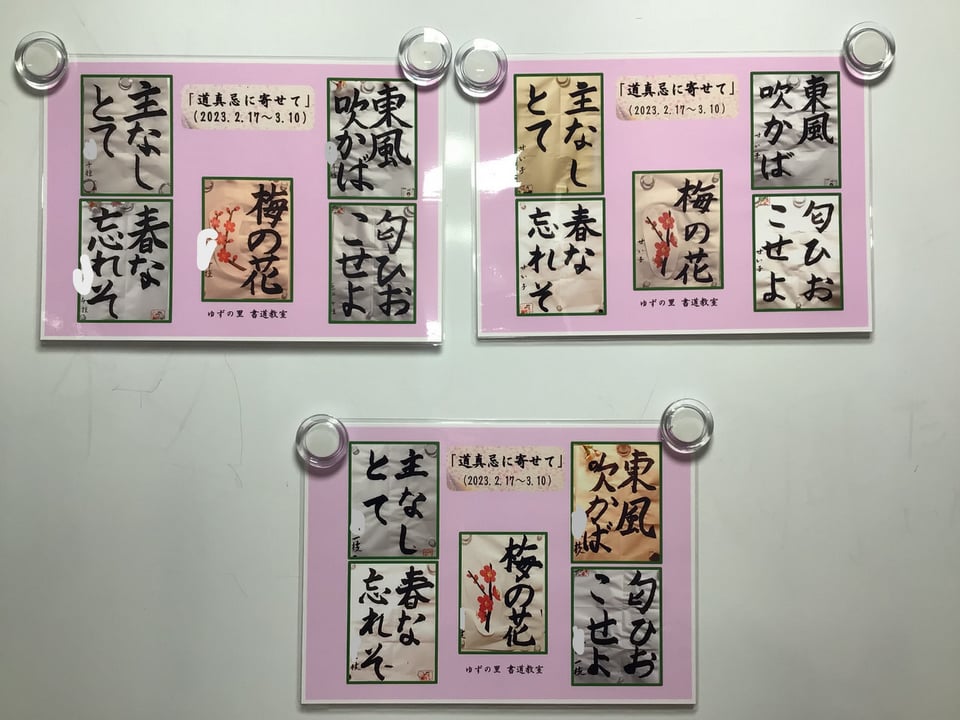 「道真忌に寄せて」
(2023. 2. 17～3. 10)
東風
吹かば
匂ひお
こせよ
梅の花
主なし
とて
春な
忘れそ
ゆずの里 書道教室
「道真忌に寄せて」
(2023. 2. 17～3. 10)
東風
吹かば
匂ひお
こせよ
梅の花
せい子
主なし
とて
せい子
春な
忘れそ
せい子
ゆずの里 書道教室
「道真忌に寄せて」
(2023. 2. 17～3. 10)
東風
吹かば
匂ひお
こせよ
梅の花
主なし
とて
春な
忘れそ
ゆずの里 書道教室